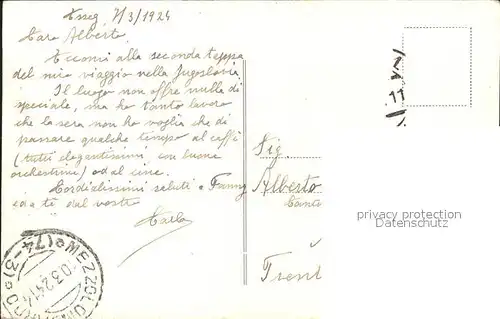 Esseg, 7/3/1924
Caro Alberto,
Eccomi alla seconda tappa
del mio viaggio nella Jugoslavia.
Il luogo non offre nulla di
speciale, ma ho tanto lavoro
che la sera non ho voglia che di
passare qualche tempo al caffè
(tutti elegantissimi con buone
orchestrine) od al cine.
Cordialissimi saluti a Fanny
ed a te dal vostro
Carlo
Sig.
Alberto
Trent
privacy protection
Datenschutz
11
MEZZOLOMBARDO
(74-3)
0.3.24.14